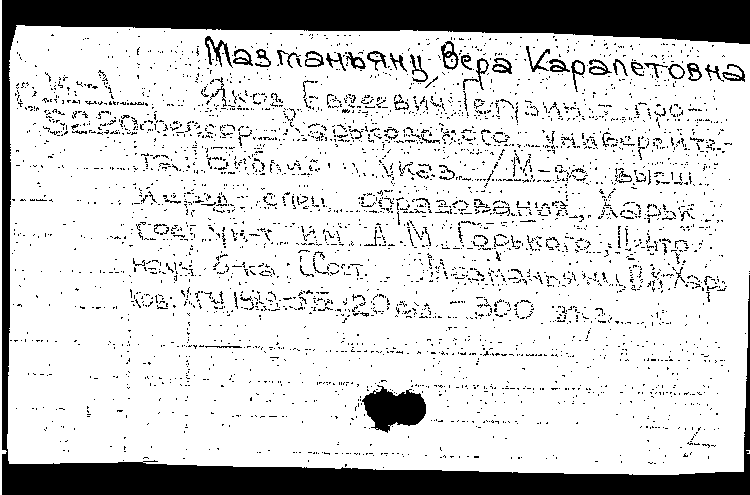 Мазманьянц Вера Карапетовна
Яков Евсеевич Гегузин - про-
5220 фессор Харьковского университе-
та: Библиогр. указ. / М-во высш.
и сред. спец. образования, Харьк.
гос. ун-т им. А. М. Горького, Центр.
науч. б-ка; [Сост. Мазманьянц В. К. - Харь-
ков: ХГУ, 20 см - 300 экз.